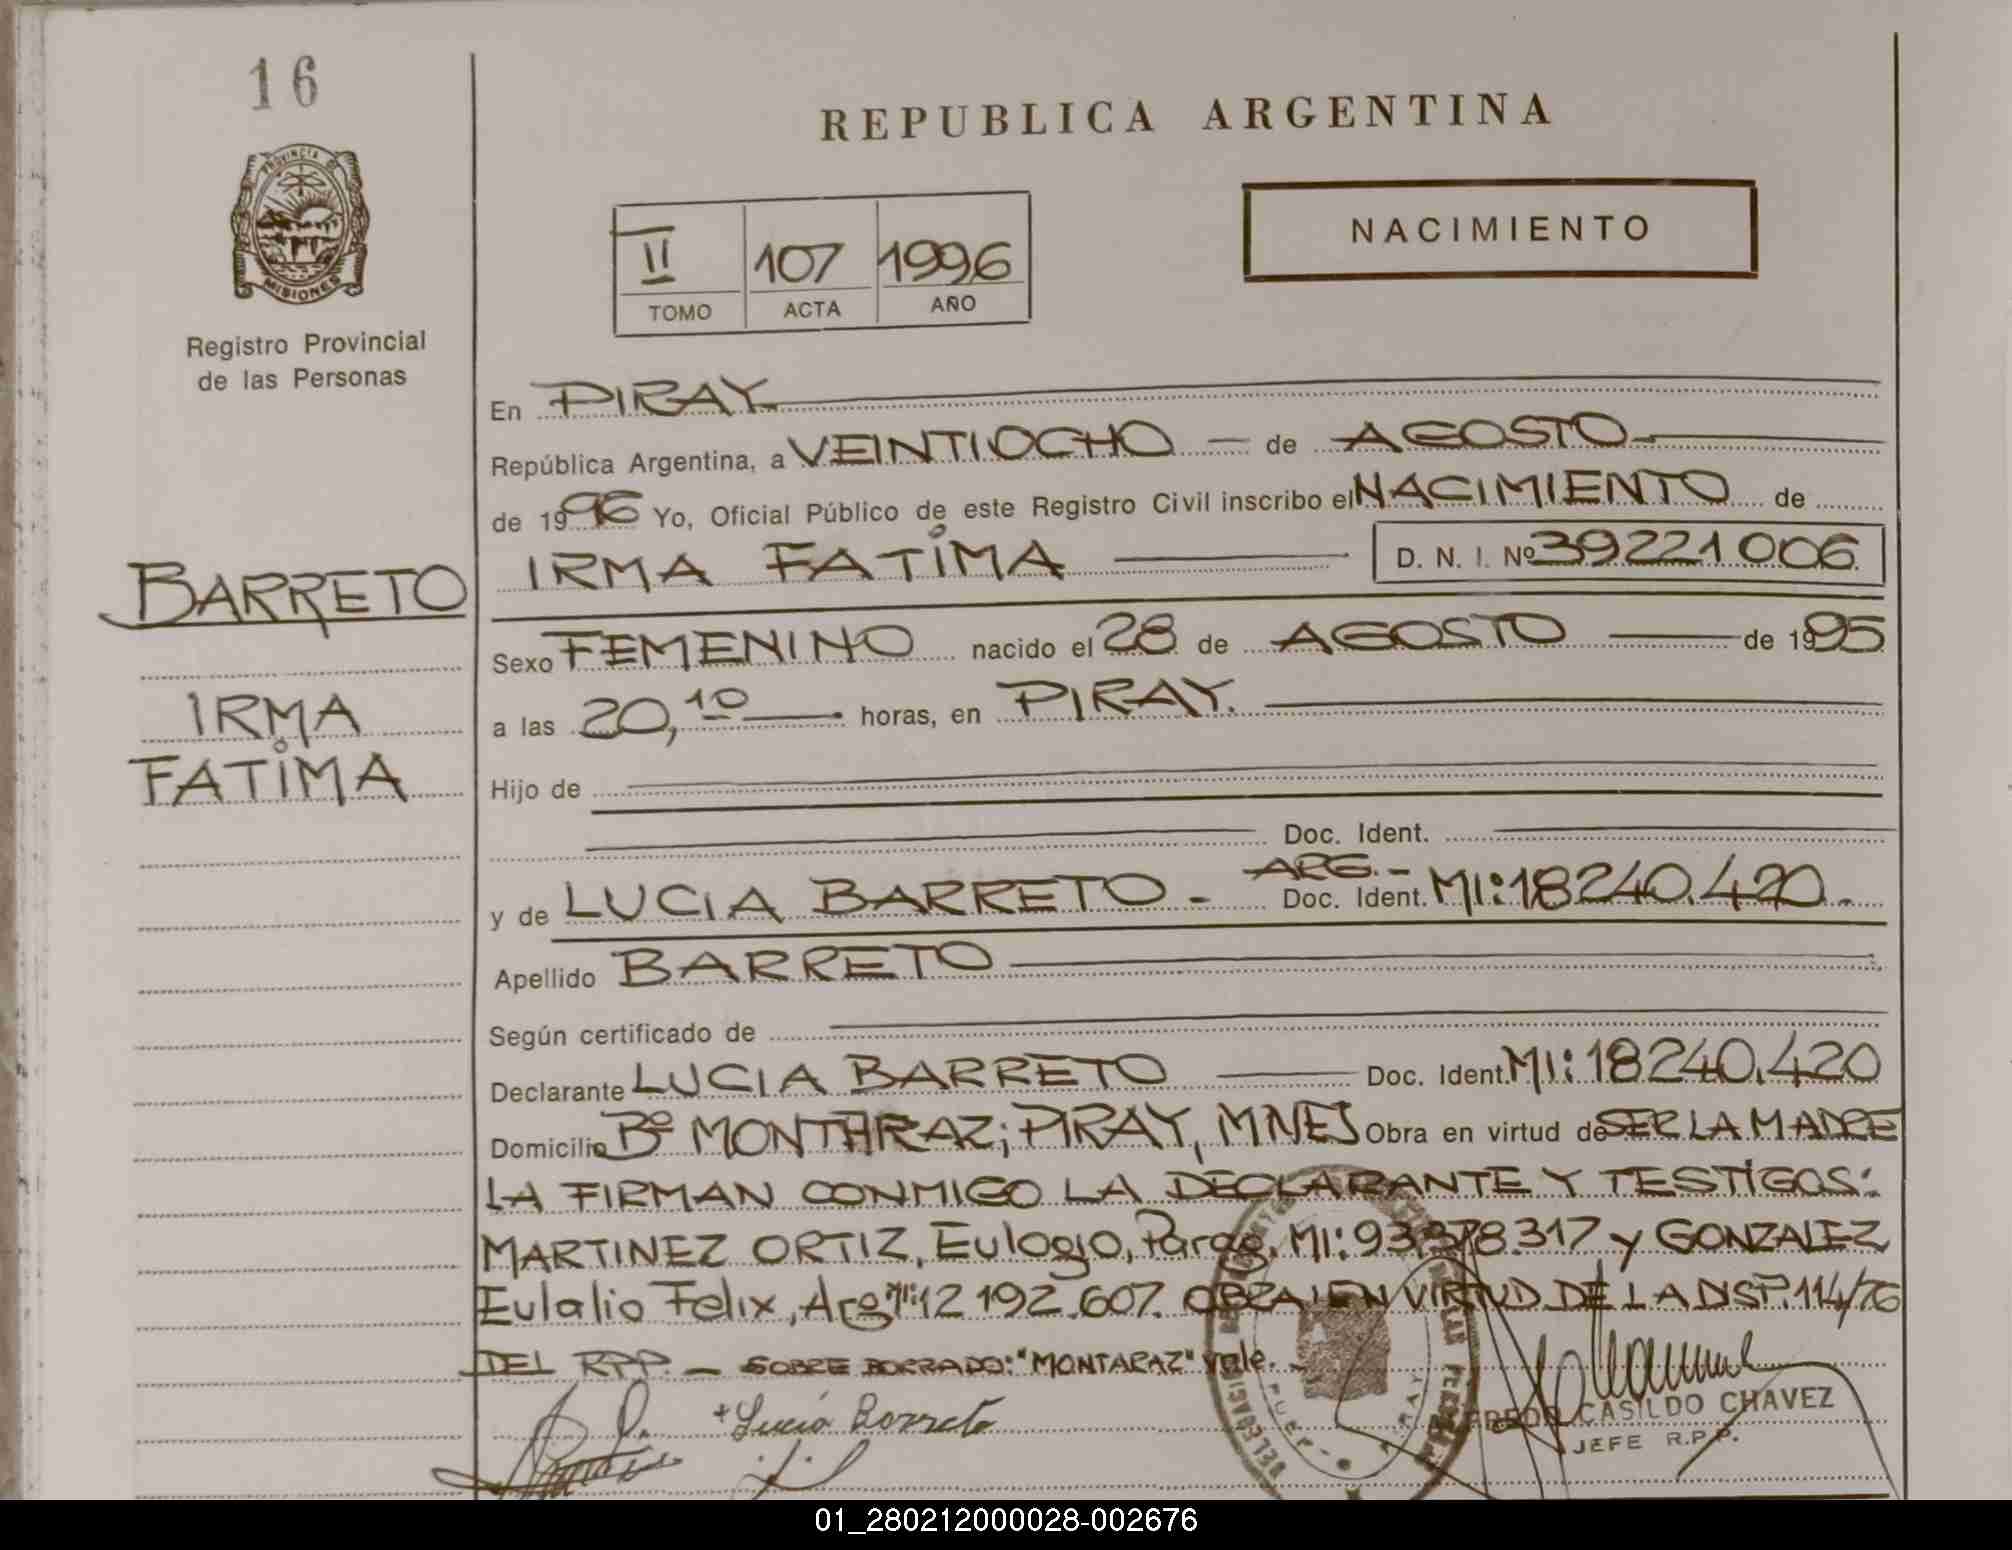 16
REPUBLICA ARGENTINA
PROVINCIA DE
MISIONES
Registro Provincial
de las Personas
II 107 1996
TOMO ACTA AÑO
NACIMIENTO
En PIRAY
República Argentina, a VEINTIOCHO de AGOSTO
de 1996 Yo, Oficial Público de este Registro Civil inscribo el NACIMIENTO de
IRMA FATIMA D. N. I. Nº 39221006
BARRETO
IRMA
FATIMA
Sexo FEMENINO nacido el 28 de AGOSTO de 1995
a las 20,10 horas, en PIRAY.
Hijo de
Doc. Ident.
ARG.-
y de LUCIA BARRETO - Doc. Ident. MI:18240.420.-
Apellido BARRETO
Según certificado de
Declarante LUCIA BARRETO Doc. Ident. MI:18240.420
Domicilio Bº MONTARAZ; PIRAY, MNES Obra en virtud de SER LA MADRE
LA FIRMAN CONMIGO LA DECLARANTE Y TESTIGOS:
MARTINEZ ORTIZ, Eulogio, Parag. MI: 93.378.317 y GONZALEZ
Eulalio Felix, Arg MI:12 192.607. OBRA EN VIRTUD DE LA DISP. 114/76
DEL RPP. - SOBRE BORRADO: "MONTARAZ" vale. -
+ Lucia Barreto
CASILDO CHAVEZ
JEFE R.P.P.
01_280212000028-002676